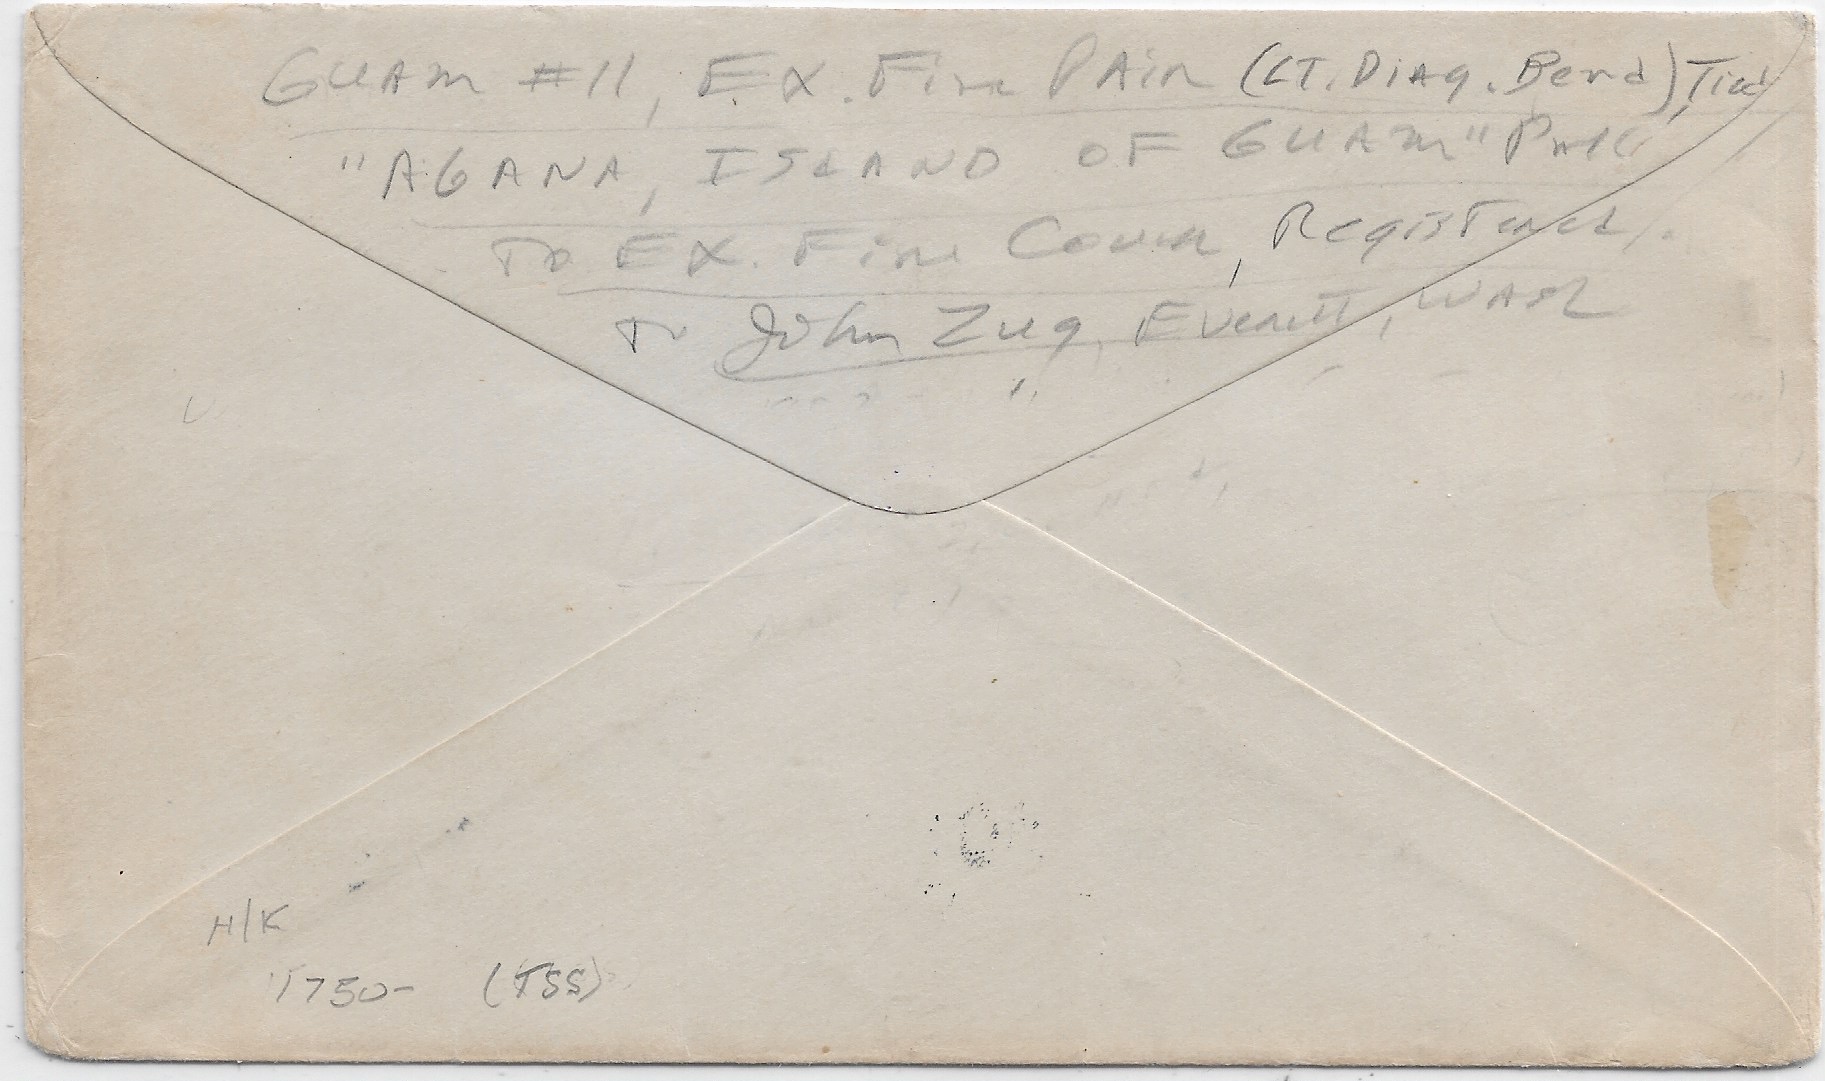 GUAM #11, EX. Fine PAir (LT. DiAg. Bend), Tied
"AGANA, ISLAND OF GUAM" Pmk
To EX. Fine Cover, Registered,
To John Zug, Everett, WASh
H/K
1750- (TSS)